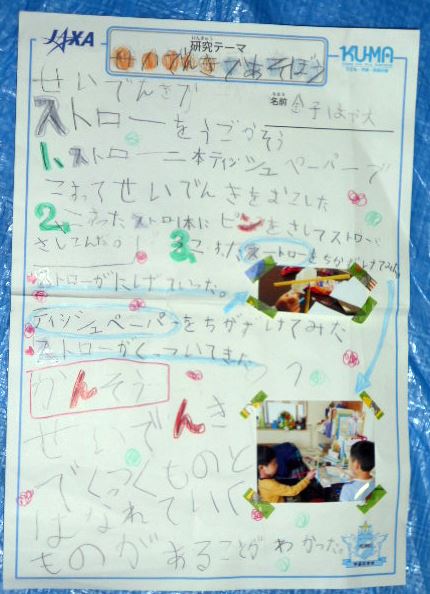 JAXA
けんきゅう
研究テーマ
KUMA
せいでんきであそぼう
せいでんきで
なまえ
名前 金子
ストローをうごかそう
1、ストロー二本ティッシュペーパーで
こすってせいでんきをおこした
2、こすったストロー1本にピンをさしてストロー
さしこんだ 3、こすったストローをちかずけてみた
ストローがにげていった。
ティッシュペーパーをちかずけてみた
ストローがくっついてきた
かんそう
せいでんき
でくっつくものと
はなれていく
ものがあることがわかった。